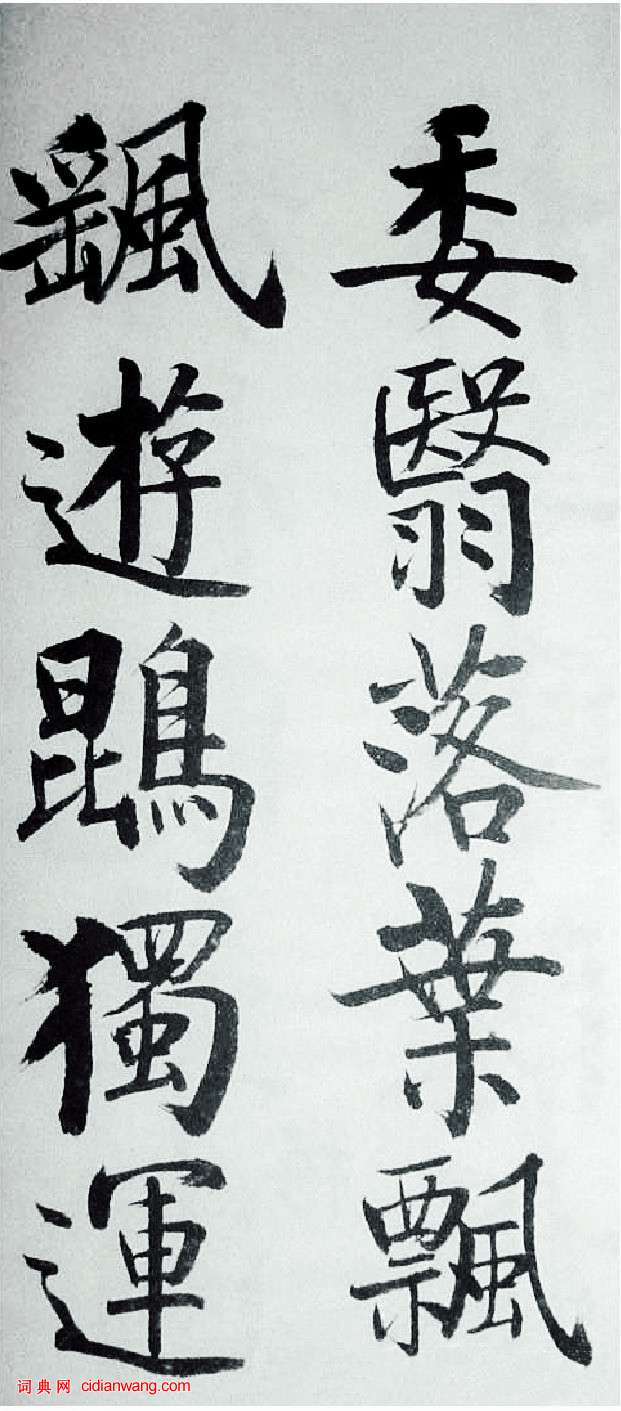 委翳落葉飄
飖遊鵾獨運
词典网 cidianwang.com